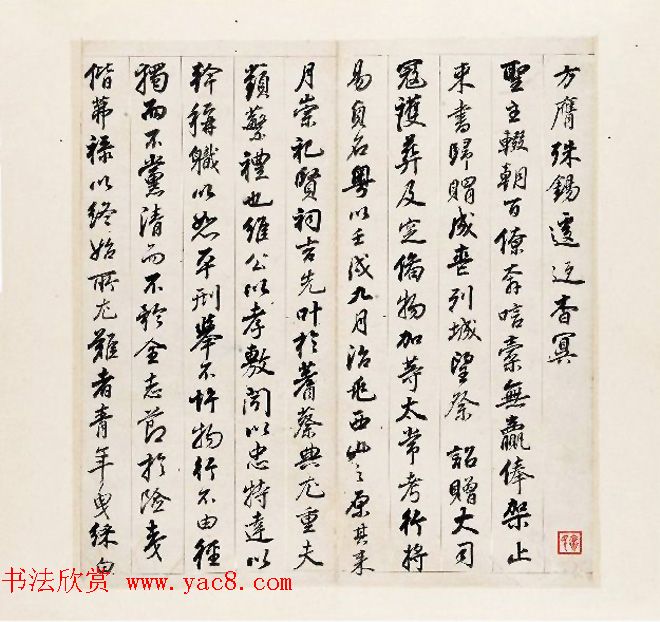 方膺殊錫遽迋杳冥
聖主輟朝百僚奔唁橐無贏俸架止
束書歸賵成喪列城望祭 詔贈大司
寇護葬及窆備物加等太常考行將
易負名粵以壬戌九月治兆西山之原其來
月崇祀賢祠吉先叶於蓍蔡典尤重夫
蘋蘩禮也維公以孝敷聞以忠特達以
幹稱職以恕平刑舉不忤物行不由徑
獨而不黨清而不矜全志節於險夷
偕茀祿以終始所尤難者青年曳綵白
书法欣赏 www.yac8.com